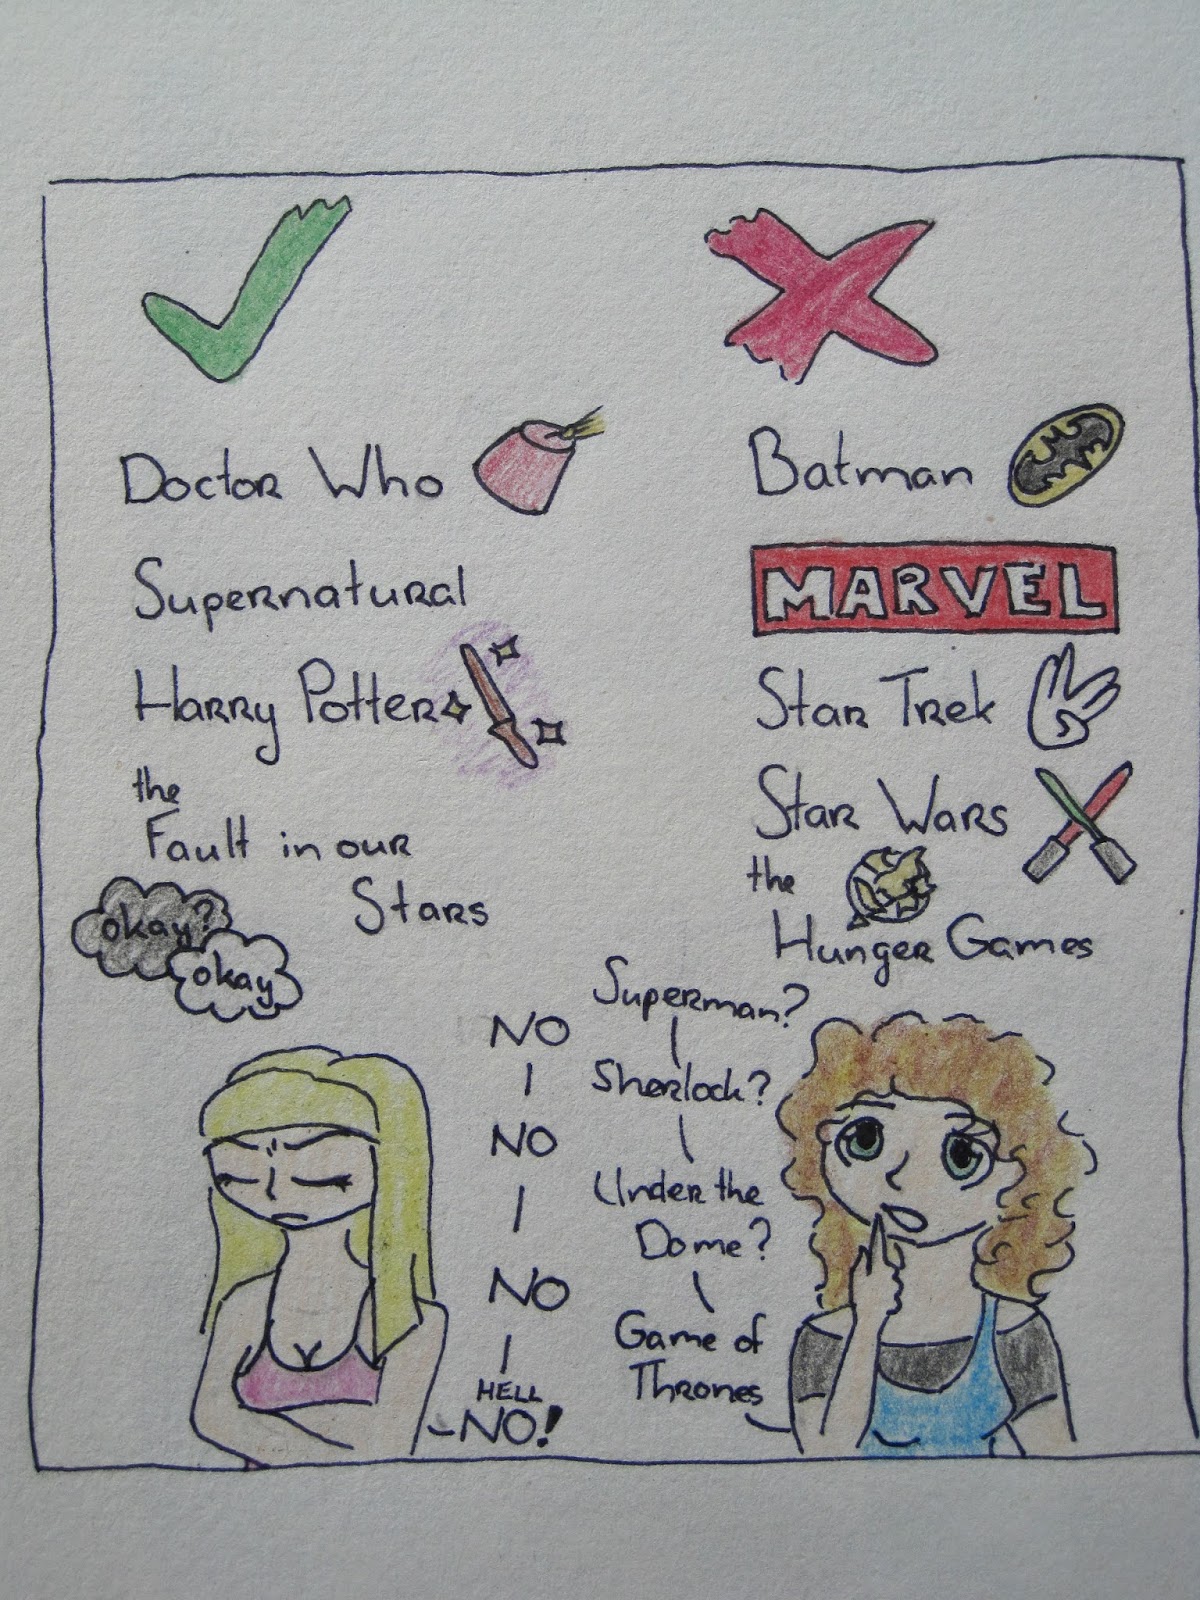 Doctor Who
Supernatural
Harry Potter
the
Fault in our
Stars
okay?
okay
Batman
MARVEL
Star Trek
Star Wars
the
Hunger Games
Superman?
NO
Sherlock?
NO
Under the
Dome?
NO
Game of
Thrones
HELL
NO!